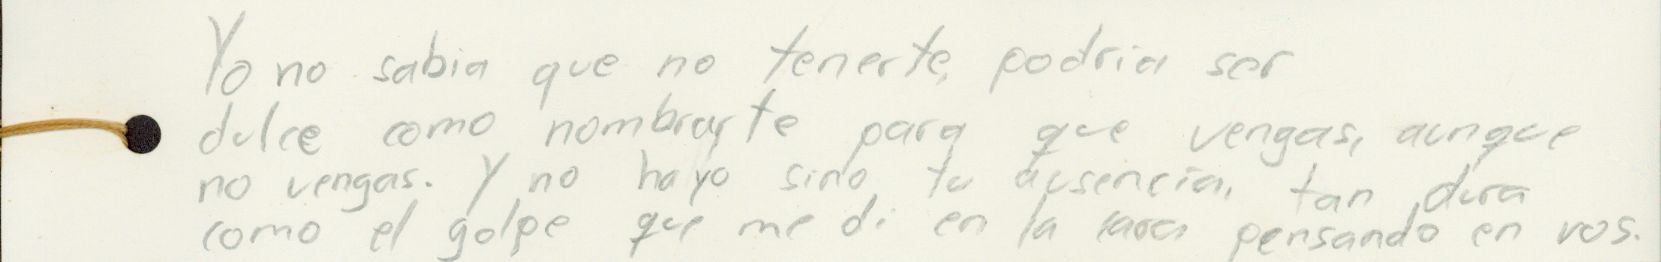 Yo no sabia que no tenerte, podria ser
dulce como nombrarte para que vengas, aunque
no vengas. Y no hayo sino tu ausencia, tan dura
como el golpe que me di en la cara pensando en vos.